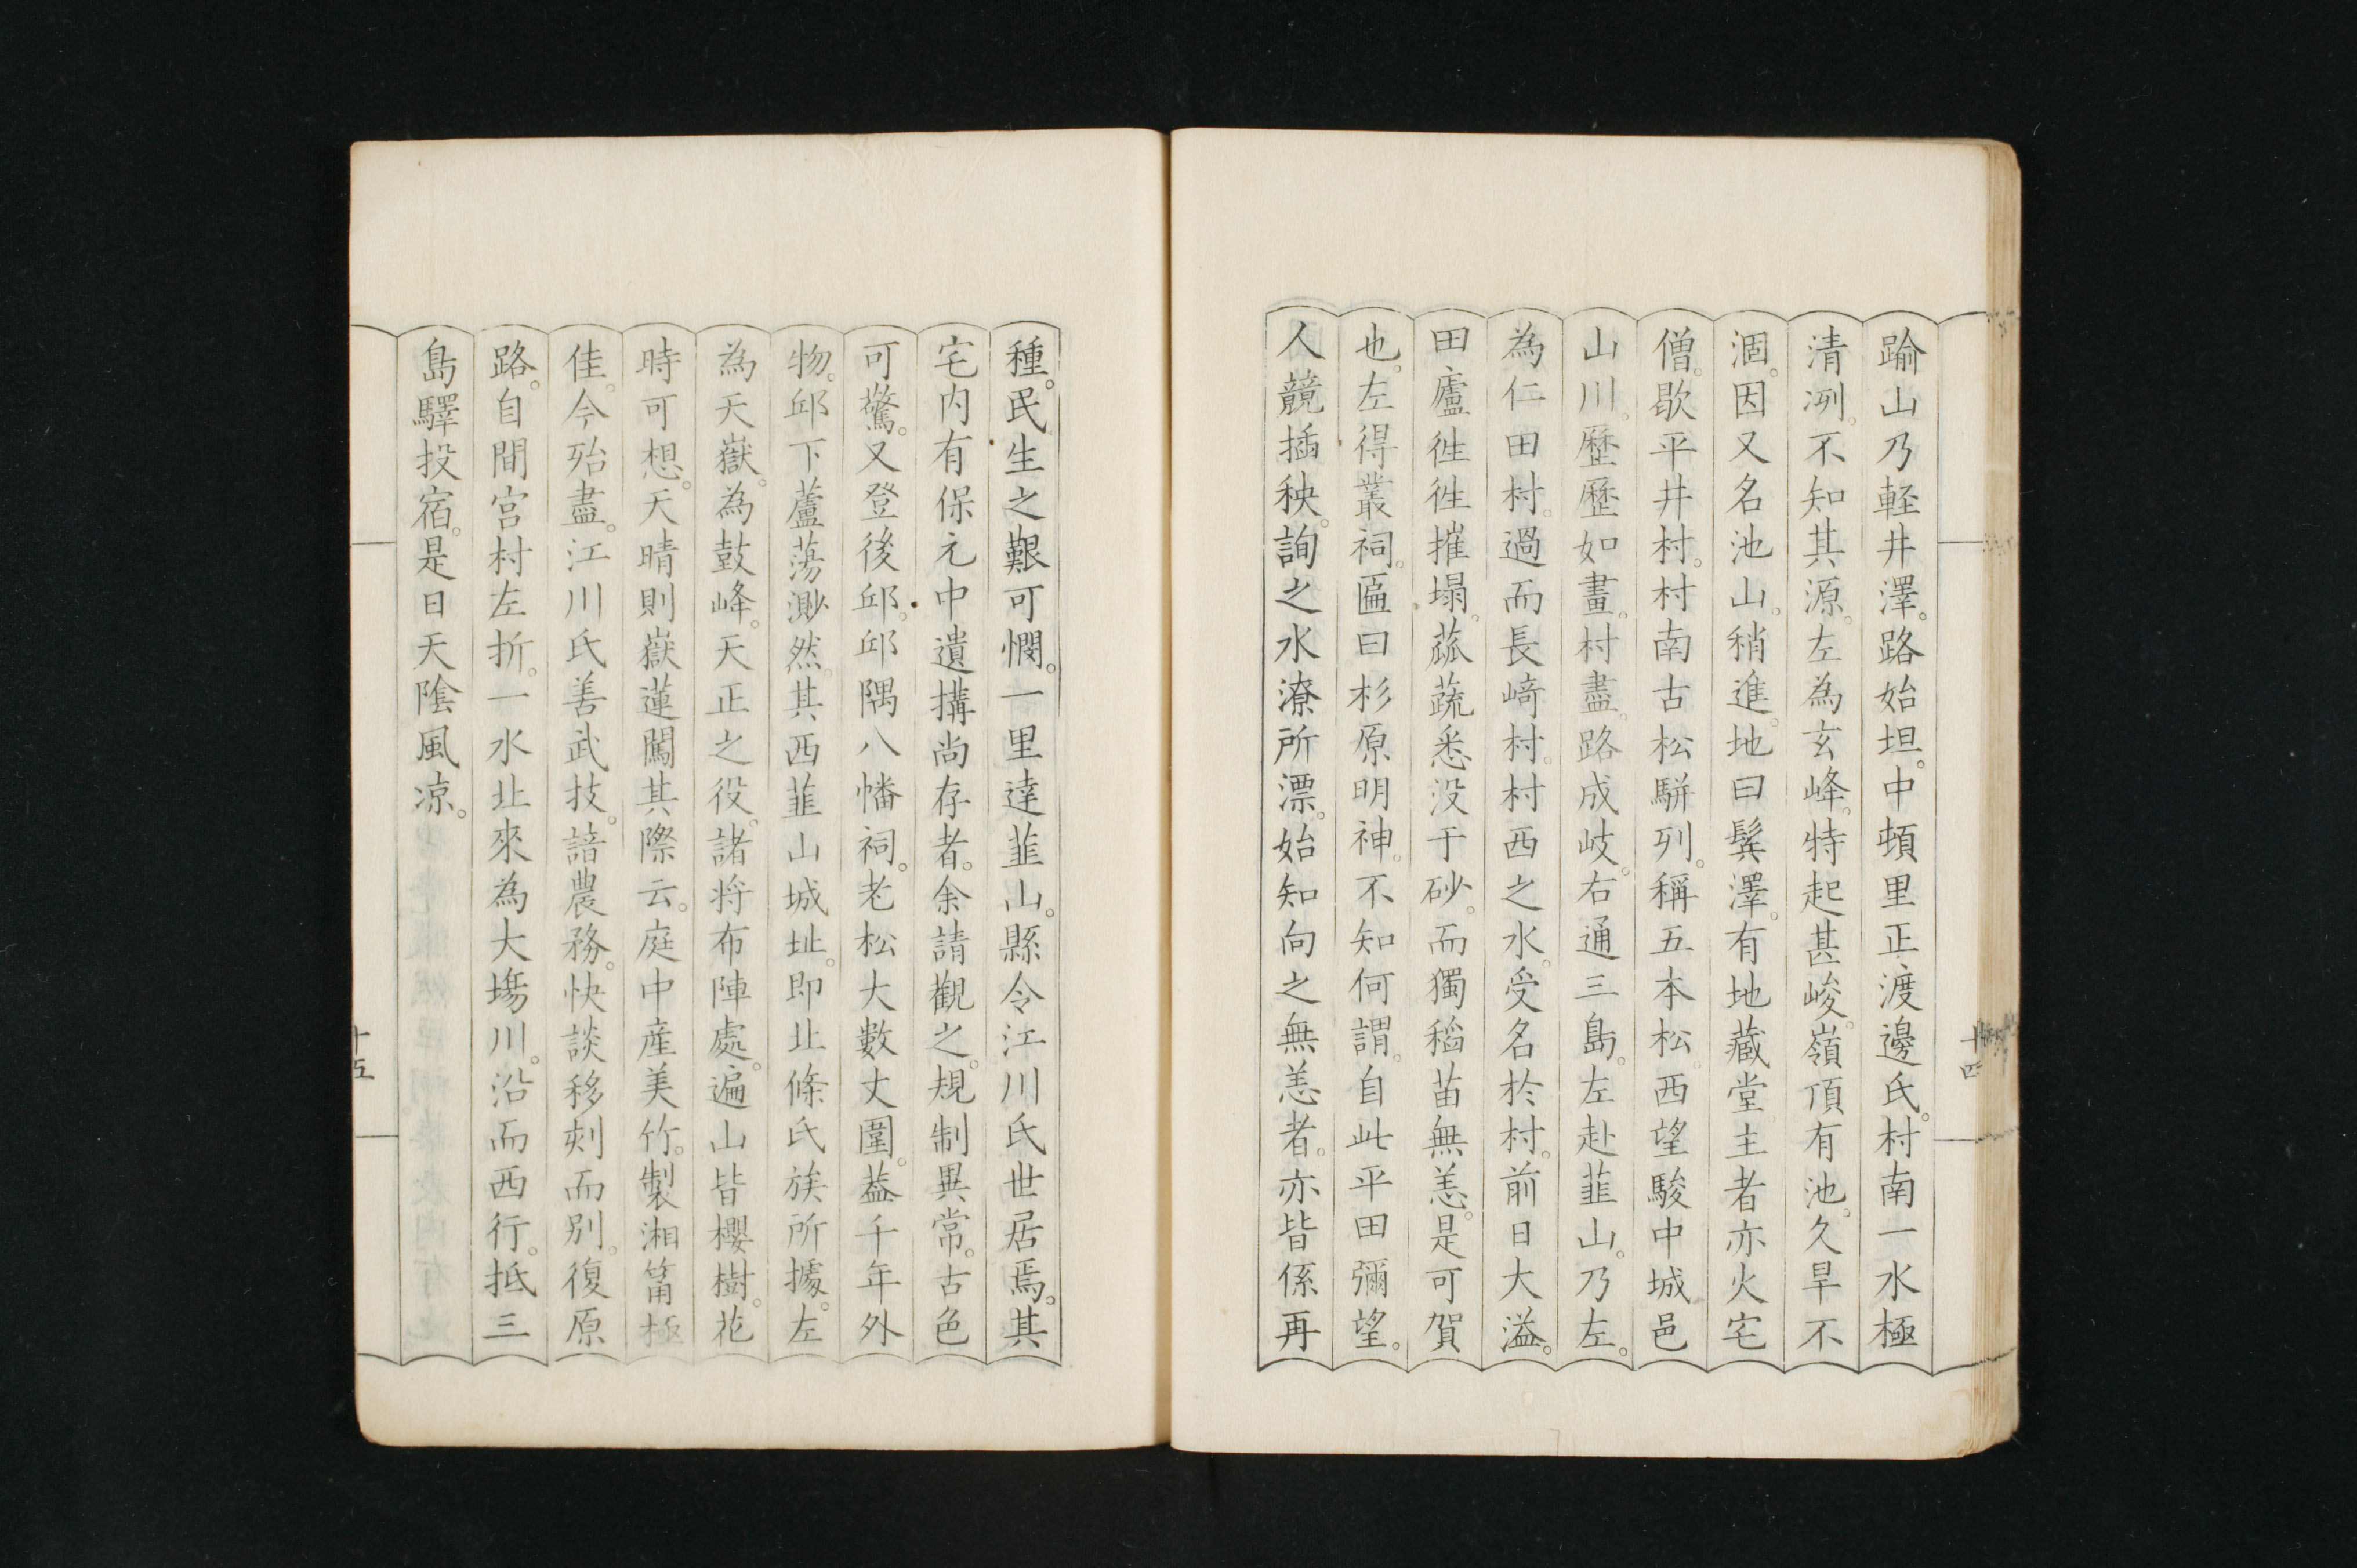 踰山乃軽井澤。路始坦。中頓里正渡邊氏。村南一水極
清冽。不知其源。左為玄峰。特起甚峻。嶺頂有池。久旱不
涸。因又名池山。稍進。地曰髮澤。有地藏堂主者亦火宅
僧。歇平井村。村南古松駢列。稱五本松。西望駿中城邑
山川。歷歷如畫。村盡。路成岐。右通三島。左赴韮山。乃左。
為仁田村。過而長﨑村。村西之水。受名於村。前日大溢。
田廬徃徃摧塌。蓏蔬悉没于砂。而獨稻苗無恙。是可賀
也。左得叢祠。匾曰杉原明神。不知何謂。自此平田彌望。
人競插秧。詢之水潦所漂。始知向之無恙者。亦皆係再
十四
種。民生之艱可憫。一里達韮山。縣令江川氏世居焉。其
宅内有保元中遺搆尚存者。余請觀之。規制異常。古色
可驚。又登後邱。邱隅八幡祠。老松大數丈圍。葢千年外
物。邱下蘆蕩渺然。其西韮山城址。即北條氏族所據。左
為天嶽。為鼓峰。天正之役。諸将布陣處。遍山皆櫻樹。花
時可想。天晴則嶽蓮闖其際云。庭中産美竹。製湘筩極
佳。今殆盡。江川氏善武技。諳農務。快談移刻而别。復原
路。自間宮村左折。一水北來為大塲川。沿而西行。抵三
島驛投宿。是日天陰風凉。
十五